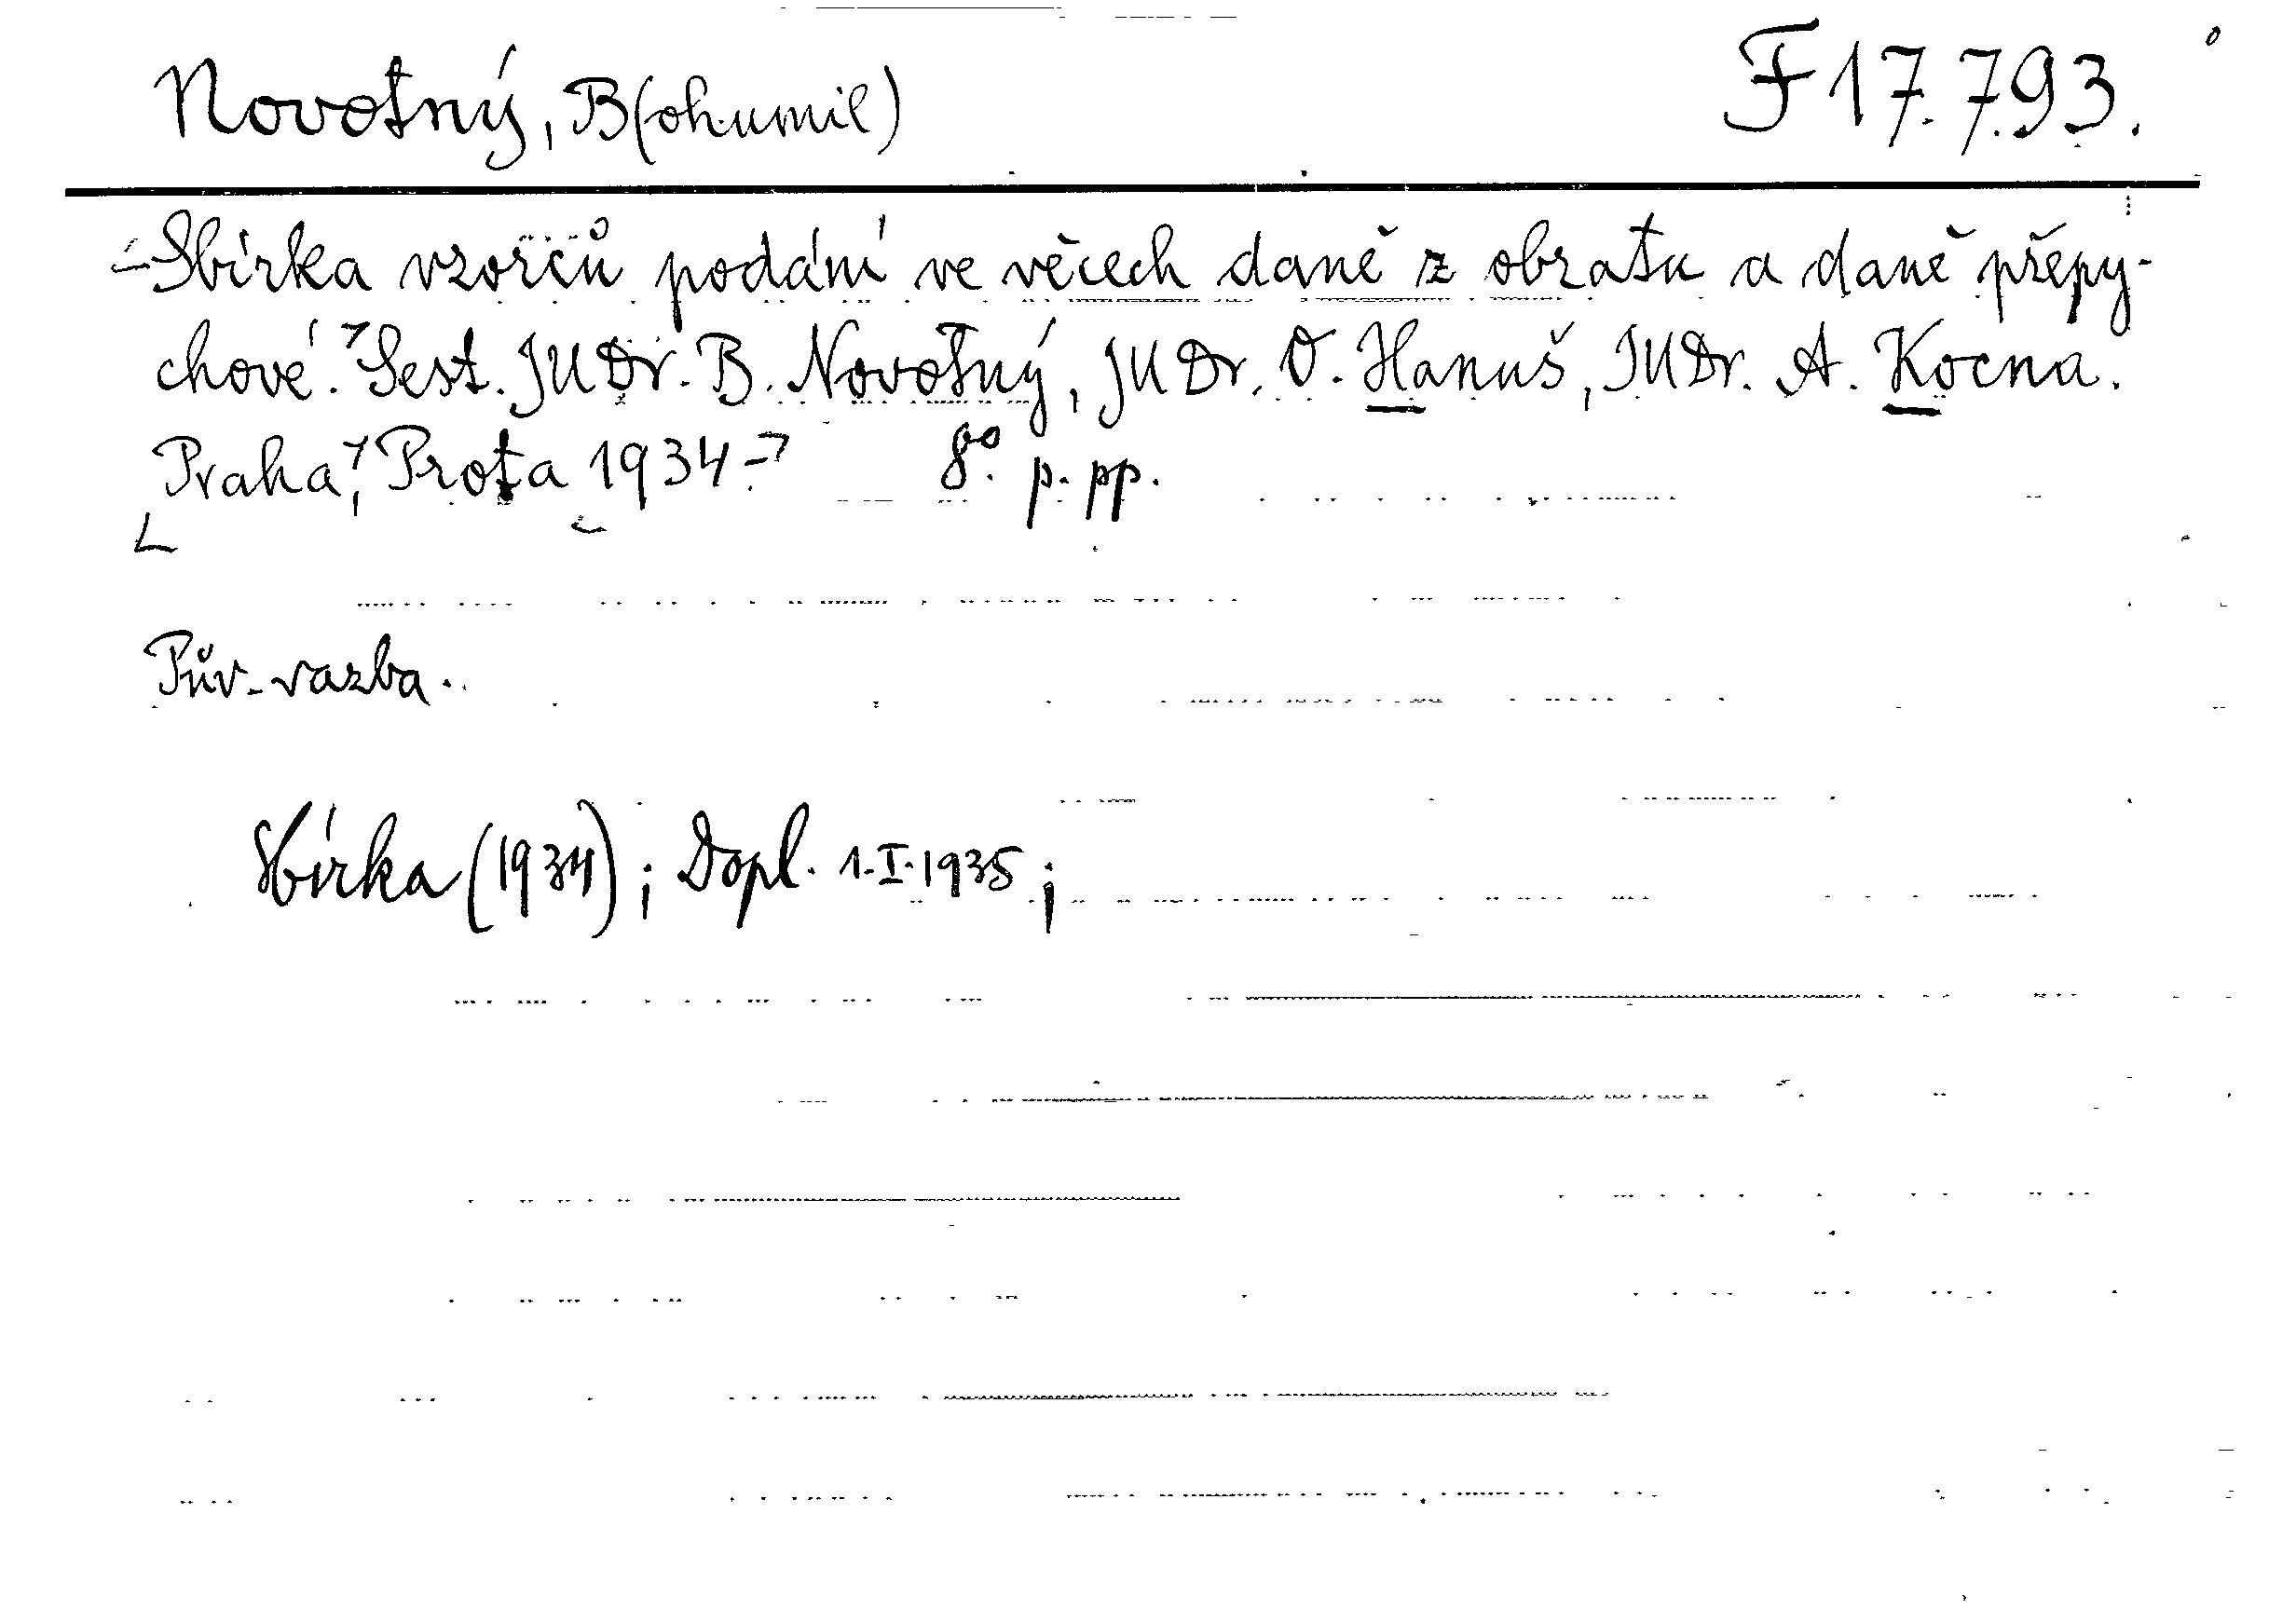 Novotný, B(ohumil)
F 17.793.
Sbírka vzorců podání ve věcech daně z obratu a daně přepy-
chové. Sest. JUDr. B. Novotný, JUDr. O. Hanuš, JUDr. A. Kocna.
Praha, Prota 1934- 8° p. pp.
Pův. vazba.
Sbírka (1934); Dopl. 1.I.1935;